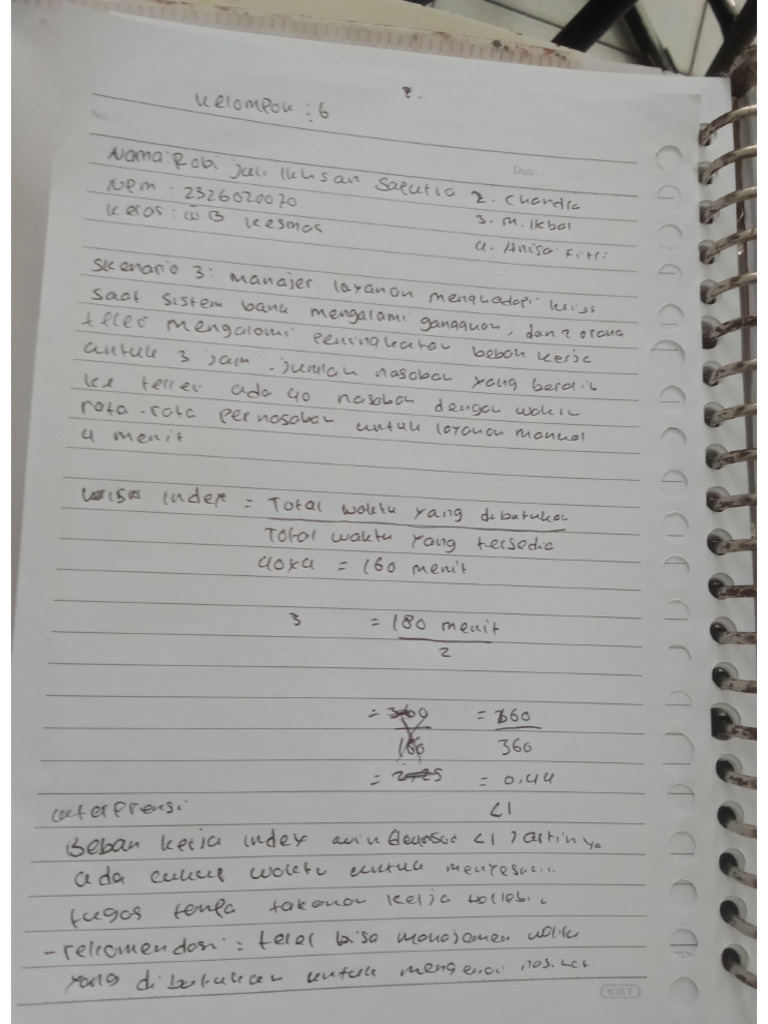 Kelompok : 6
No.
Date.:
Nama: Robi Juli Ikhsan Saputra 2. Chandra
Npm : 2326020070 3. M. Ikbal
Kelas : B Kesmas 4. Anisa Fitri
Skenario 3: Manajer layanan menghadapi krisis
saat sistem bank mengalami gangguan, dan 2 orang
teller mengalami peningkatan beban kerja
untuk 3 jam. Jumlah nasabah yang beralih
ke teller ada 40 nasabah dengan waktu
rata-rata per nasabah untuk layanan manual
4 menit
index = Total waktu yang dibutuhkan
Total waktu yang tersedia
40x4 = 160 menit
3 = 180 menit
2
= 360 = 160
160 360
= 2,25 = 0.44
<1
Beban kerja index <1 artinya
ada cukup waktu untuk
tugas tanpa tekanan kerja
- rekomendasi : teler bisa manajemen waktu
yang dibutuhkan untuk
KIKY